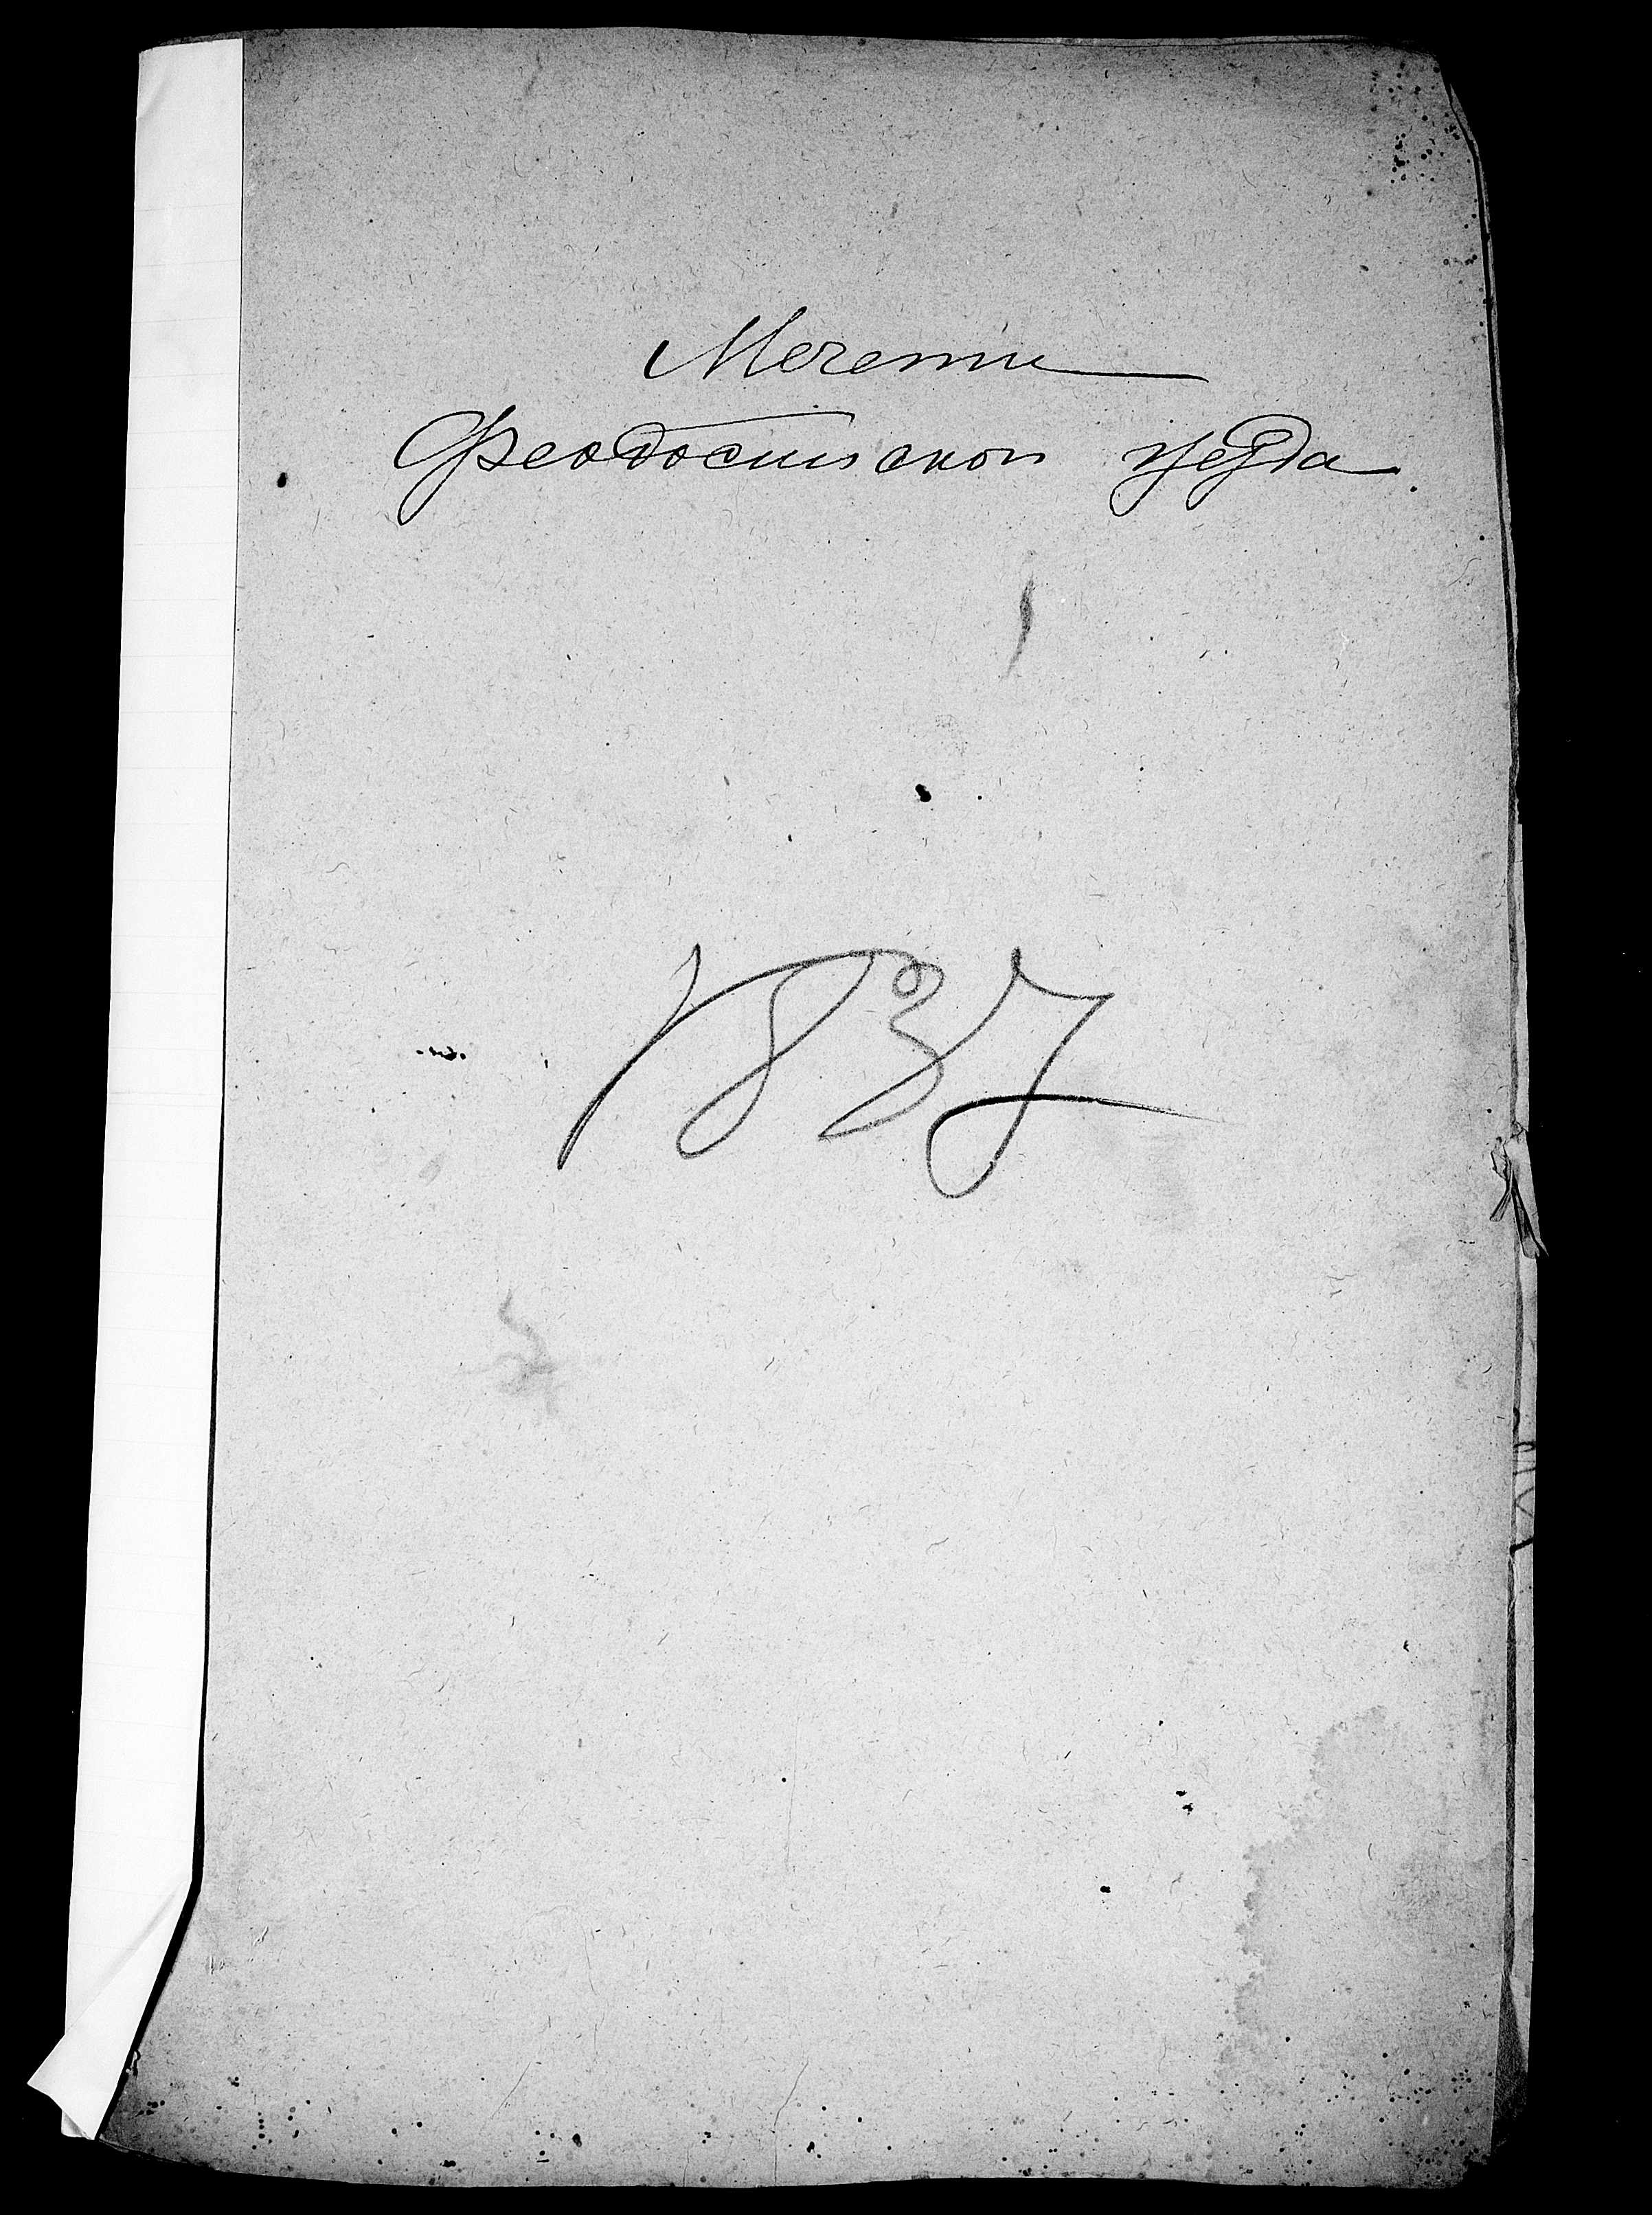 Мечети
Феодосийскои уезда
1837